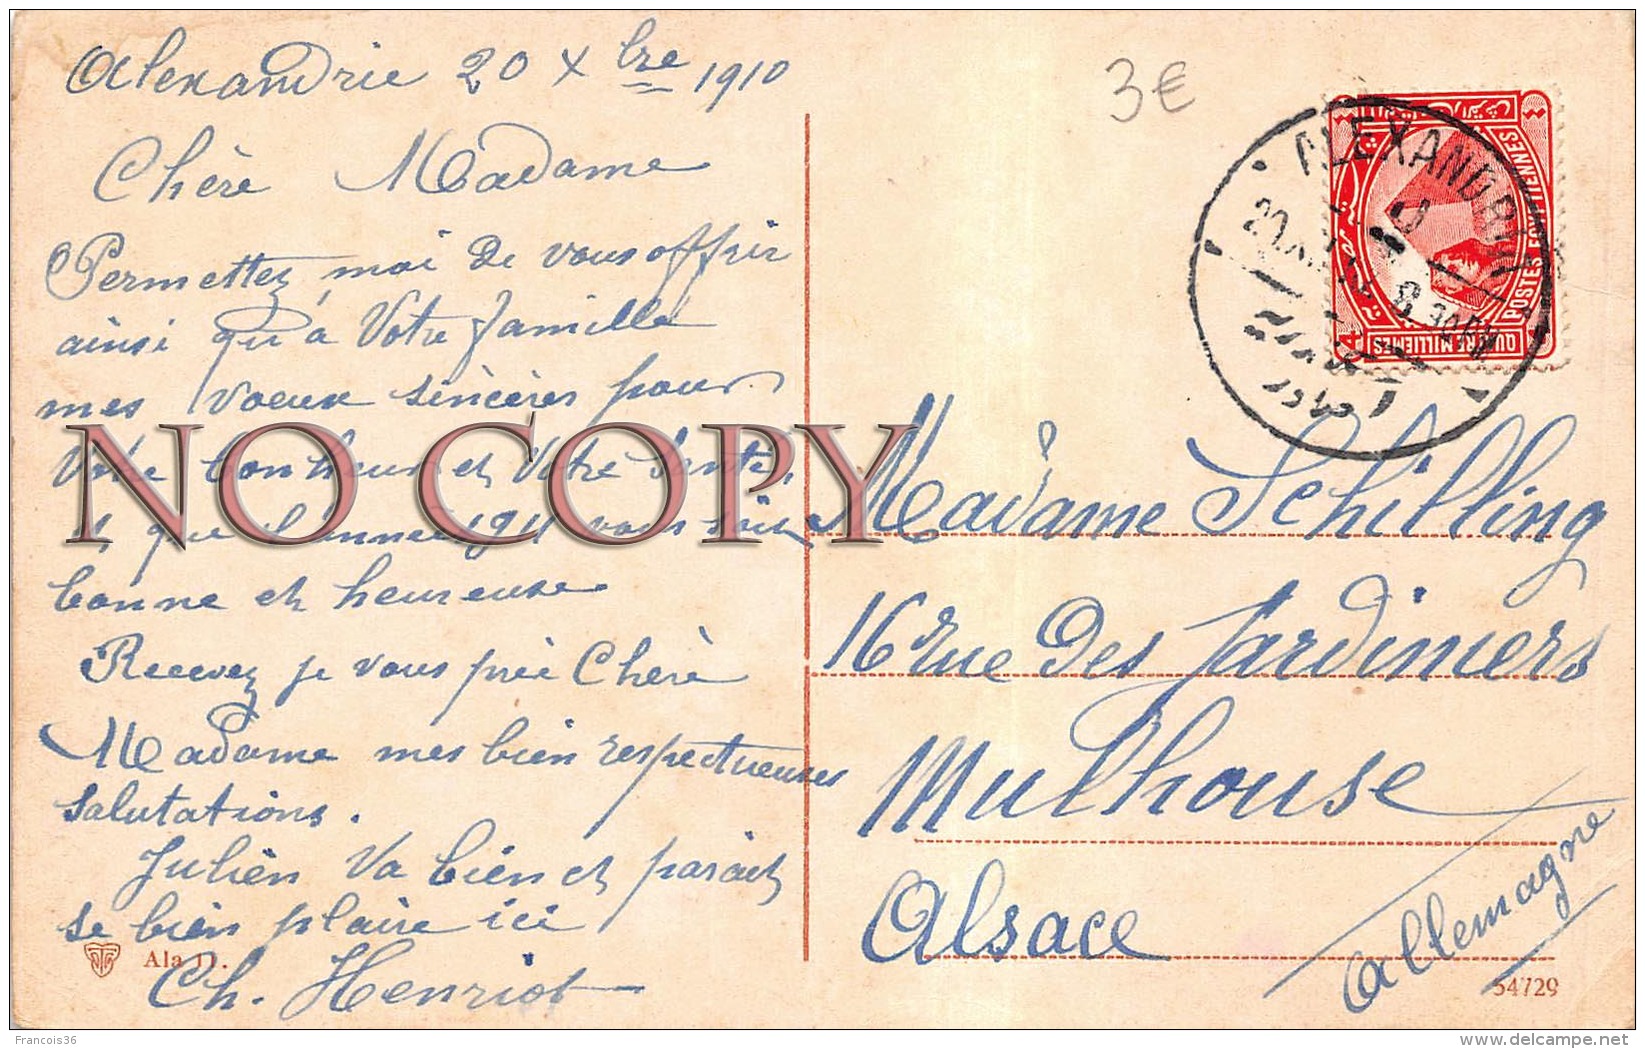 Alexandrie 20 Xbre 1910
Chère Madame
Permettez, moi de vous offrir
ainsi qu'à Votre famille
mes voeux sincères pour
Votre bonheur et Votre Santé,
et que l'année 1911 vous soit
bonne et heureuse
Recevez je vous prie Chère
Madame mes bien respectueuses
salutations.
Julien Va bien et parait
se bien plaire ici
Ch. Henriot
Ala 11.
3€
ALEXANDRIA
POSTES EGYPTIENNES
MILLIEMES
4
Madame Schilling
16 rue des Jardiniers
Mulhouse
Alsace
Allemagne
54729
NO COPY
Francois36
www.delcampe.net